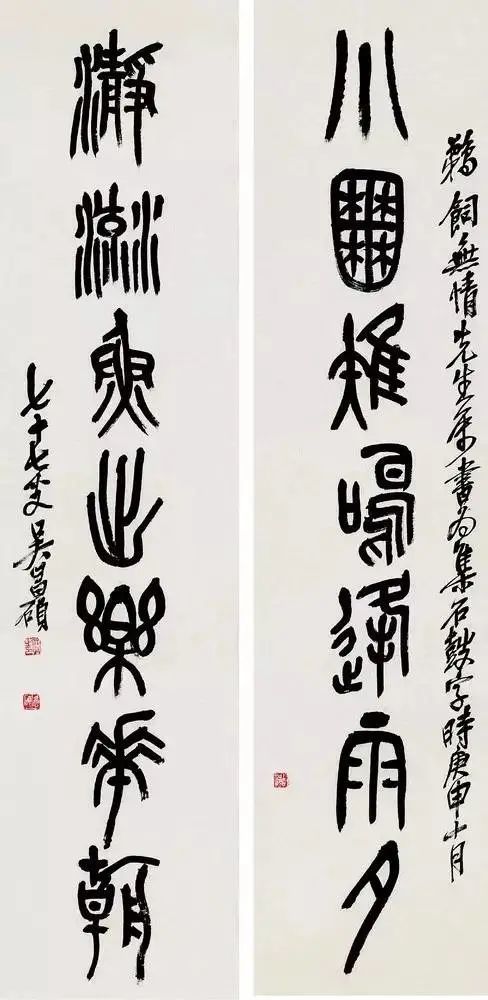 小囿雉鳴逢雨夕
瀞流魚出樂華朝
無情先生屬書為集石鼓字時庚申十月
七十七叟吳昌碩